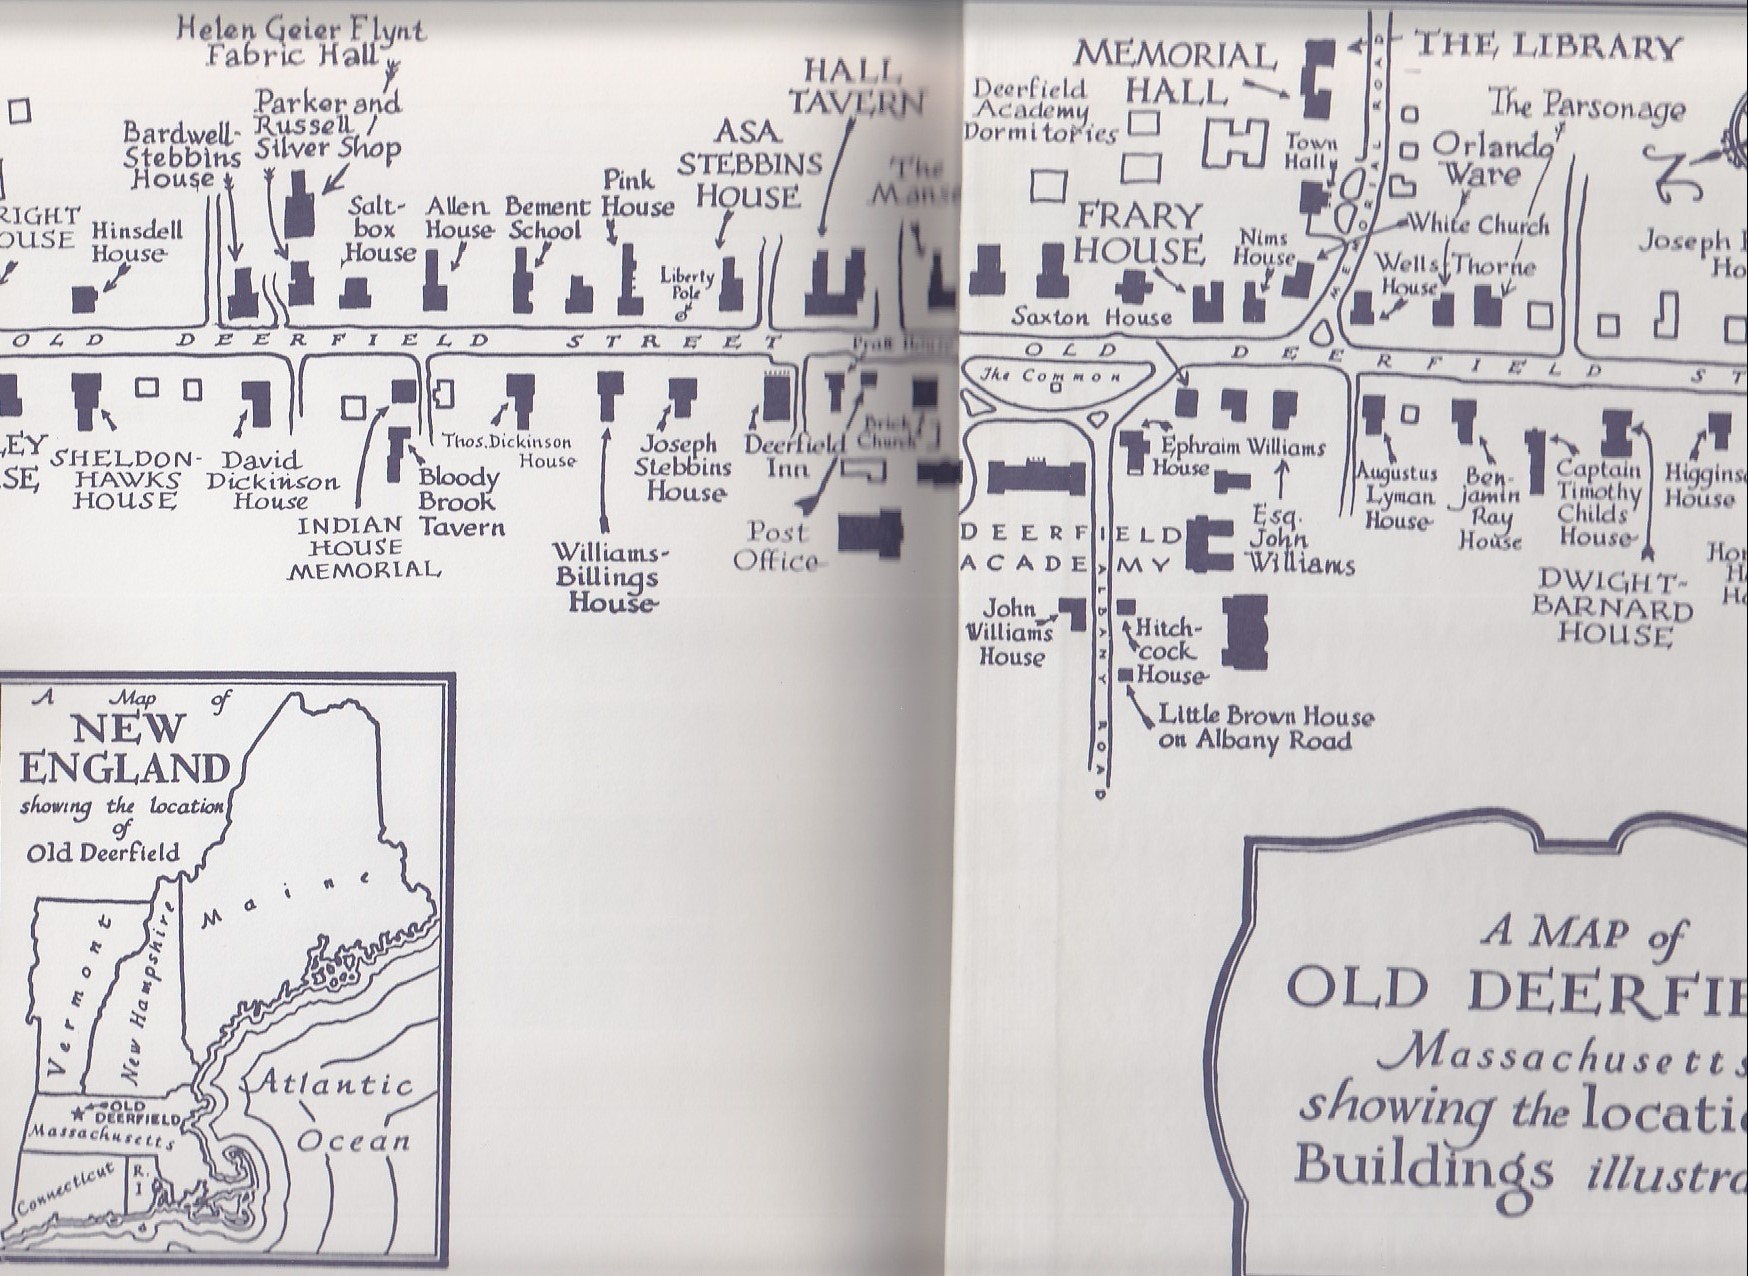 Helen Geier Flynt
Fabric Hall
Parker and
Russell
Silver Shop
Bardwell-
Stebbins
House
RIGHT
OUSE
Hinsdell
House
Salt-
box
House
Allen
House
Bement
School
Pink
House
ASA
STEBBINS
HOUSE
Liberty
Pole
HALL
TAVERN
The
Manse
OLD DEERFIELD STREET
LEY
SE
SHELDON-
HAWKS
HOUSE
David
Dickinson
House
INDIAN
HOUSE
MEMORIAL
Bloody
Brook
Tavern
Thos. Dickinson
House
Williams-
Billings
House
Joseph
Stebbins
House
Deerfield
Inn
Brick
Church
Post
Office
MEMORIAL
HALL
Deerfield
Academy
Dormitories
THE LIBRARY
The Parsonage
Town
Hall
Orlando
Ware
White Church
FRARY
HOUSE
Nims
House
Wells
House
Thorne
Joseph
Ho
Saxton House
OLD DEERFIELD ST
The Common
Ephraim Williams
House
Esq.
John
Williams
Augustus
Lyman
House
Ben-
jamin
Ray
House
Captain
Timothy
Childs
House
Higgins
House
DWIGHT-
BARNARD
HOUSE
Hou
H
Ho
DEERFIELD
ACADEMY
ALBANY ROAD
John
Williams
House
Hitch-
cock
House
Little Brown House
on Albany Road
A Map of
NEW
ENGLAND
showing the location
of
Old Deerfield
Maine
Vermont
New Hampshire
OLD
DEERFIELD
Massachusetts
Connecticut
R.
I
Atlantic
Ocean
A MAP of
OLD DEERFIE
Massachusetts
showing the locati
Buildings illustra